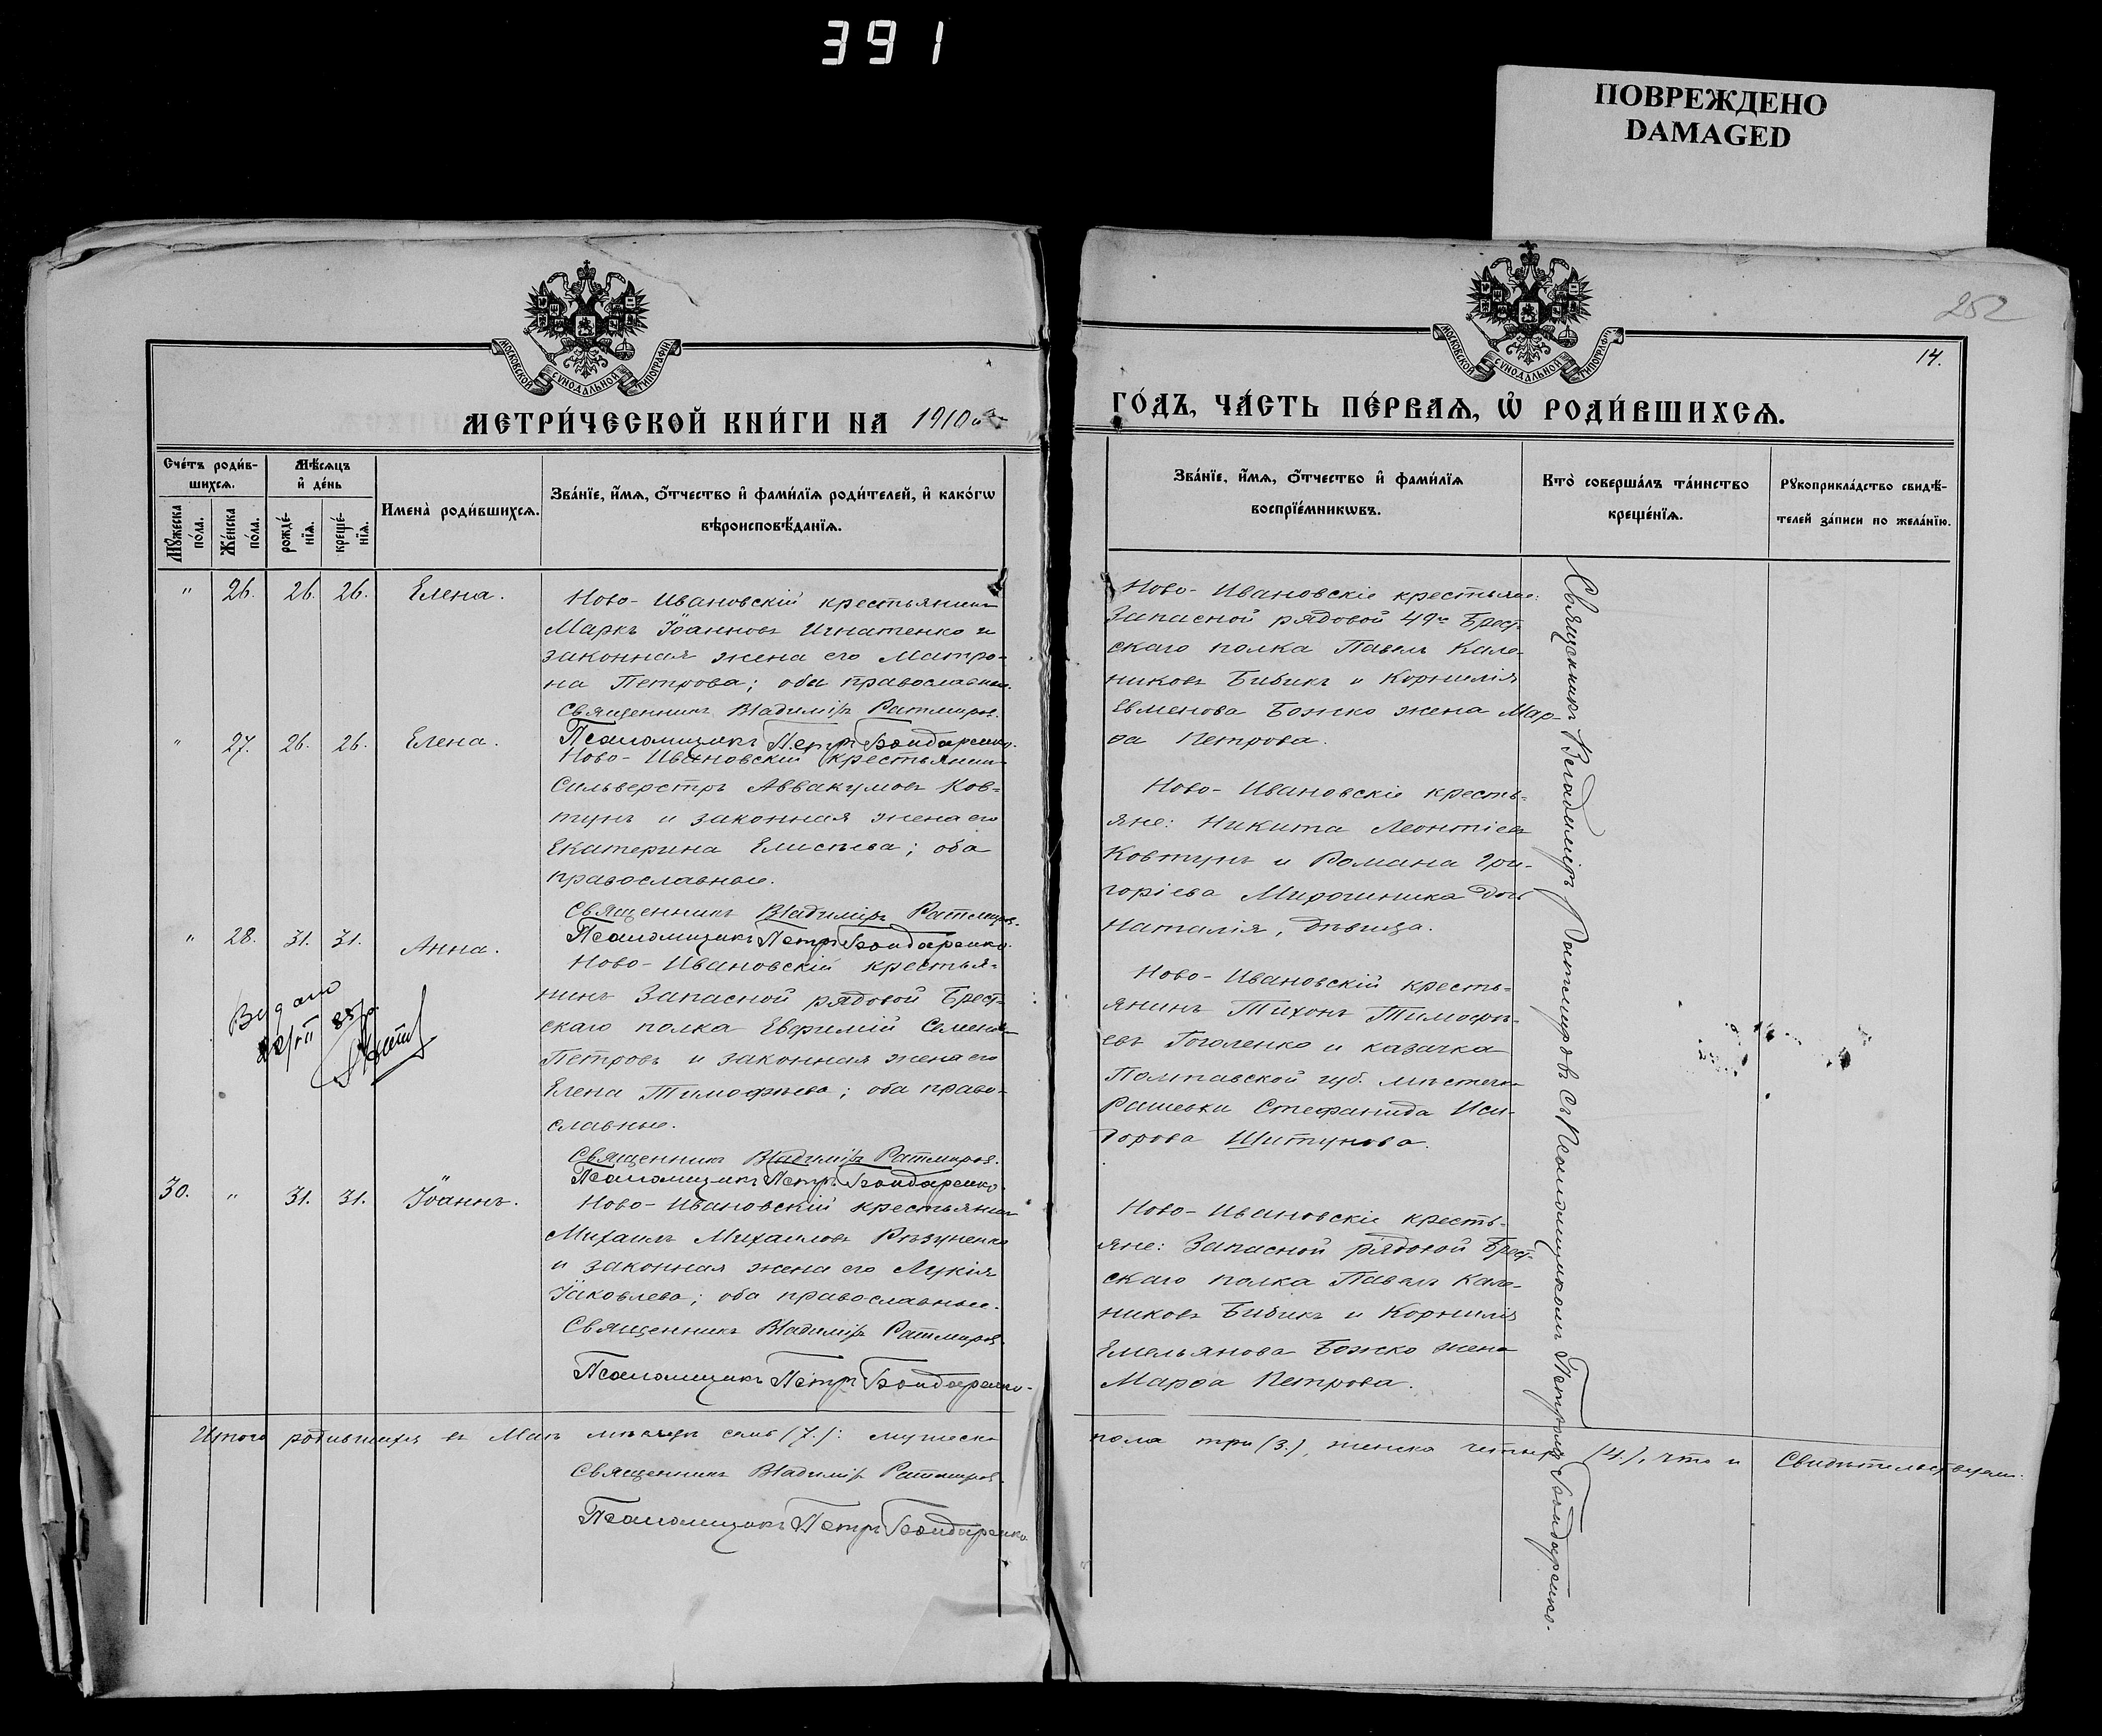 391
ПОВРЕЖДЕНО
DAMAGED
252
14.
МОСКОВСКОЙ СѴНОДАЛЬНОЙ ТИПОГРАФІИ
МОСКОВСКОЙ СѴНОДАЛЬНОЙ ТИПОГРАФІИ
МЕТРИ́ЧЕСКОЙ КНИ́ГИ НА 1910й
ГО́ДЪ, ЧА́СТЬ ПЕ́РВАѦ, Ѡ҆ РОДИ́ВШИХСѦ.
Сче́тъ роди́в-
шихсѧ.
Мѣ́сѧцъ
и҆ де́нь
Мꙋ́жеска по́ла.
Же́нска по́ла.
рожде́-
нїѧ.
креще́-
нїѧ.
Имена̀ роди́вшихсѧ.
Зва́нїе, и҆́мѧ, ѻ҆́тчество и҆ фами́лїѧ роди́телей, и҆ како́гѡ
вѣроисповѣ́данїѧ.
Зва́нїе, и҆́мѧ, ѻ҆́тчество и҆ фами́лїѧ
воспрїе́мникѡвъ.
Кто̀ соверша́лъ та́инство
креще́нїѧ.
Рꙋкоприкла́дство свидѣ́-
телей за́писи по жела́нїю.
" 26. 26. 26. Елена.
Ново-Ивановскій крестьянинъ
Маркъ Іоанновъ Игнатенко и
законная жена его Матро-
на Петрова; оба православные.
Священникъ Владиміръ Ратмировъ.
Псаломщикъ Петръ Бондаренко.
Ново-Ивановскіе крестьяне:
Запасной рядовой 49го Брест-
скаго полка Павелъ Кале-
никовъ Бибикъ и Корнилія
Евменова Божко жена Мар-
ѳа Петрова.
" 27. 26. 26. Елена.
Ново-Ивановскій крестьянинъ
Сильверстръ Аввакумовъ Ков-
тунъ и законная жена его
Екатерина Елисѣева; оба
православные.
Священникъ Владиміръ Ратмировъ.
Псаломщикъ Петръ Бондаренко.
Ново-Ивановскіе кресть-
яне: Никита Леонтіевъ
Ковтунъ и Романа Гри-
горіева Мирошника дочь
Наталія, дѣвица.
" 28. 31. 31. Анна.
Видано
Ново-Ивановскій крестья-
нинъ Запасной рядовой Брест-
скаго полка Евфимій Семеновъ
Петровъ и законная жена его
Елена Тимофѣева; оба право-
славные.
Священникъ Владиміръ Ратмировъ.
Псаломщикъ Петръ Бондаренко.
Ново-Ивановскій кресть-
янинъ Тихонъ Тимофѣ-
евъ Гоголенко и казачка
Полтавской губ. мѣстечка
Рашевки Стефанида Иси-
дорова Шитунова.
30. " 31. 31. Іоаннъ.
Ново-Ивановскій крестьянинъ
Михаилъ Михаиловъ Рѣзуненко
и законная жена его Лукія
Іаковлева; оба православные.
Священникъ Владиміръ Ратмировъ.
Псаломщикъ Петръ Бондаренко.
Ново-Ивановскіе кресть-
яне: Запасной рядовой Брест-
скаго полка Павелъ Кале-
никовъ Бибикъ и Корнилія
Емельянова Божко жена
Марѳа Петрова.
Священникъ Владиміръ Ратмировъ съ Псаломщикомъ Петромъ Бондаренко.
Итого родившихся въ Маѣ мѣсяцѣ семь (7.): мужеска
пола три (3.), женска четыре (4.), что и свидѣтельствуемъ.
Священникъ Владиміръ Ратмировъ.
Псаломщикъ Петръ Бондаренко.